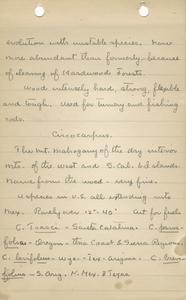 evolution with unstable species. Now
more abundant than formerly because
of clearing of Hardwood Forests.
Wood intensely hard, strong, flexible
and tough. Used for turnery and fishing
rods.
Cercocarpus.
The Mt. Mahogany of the dry interior
mts. of the west and S. Cal. & islands.
Name from the wood - very fine.
4 species in U.S. all extending into
Mex. Rarely over 15'-40' Cut for fuel
C. Traskii - Santa Catalina: C.
folius - Oregon - thru Coast & Sierra Regions.
C. - Wyo - Tex - Arizona - C.
- S. Ariz. N. Mex. & Texas